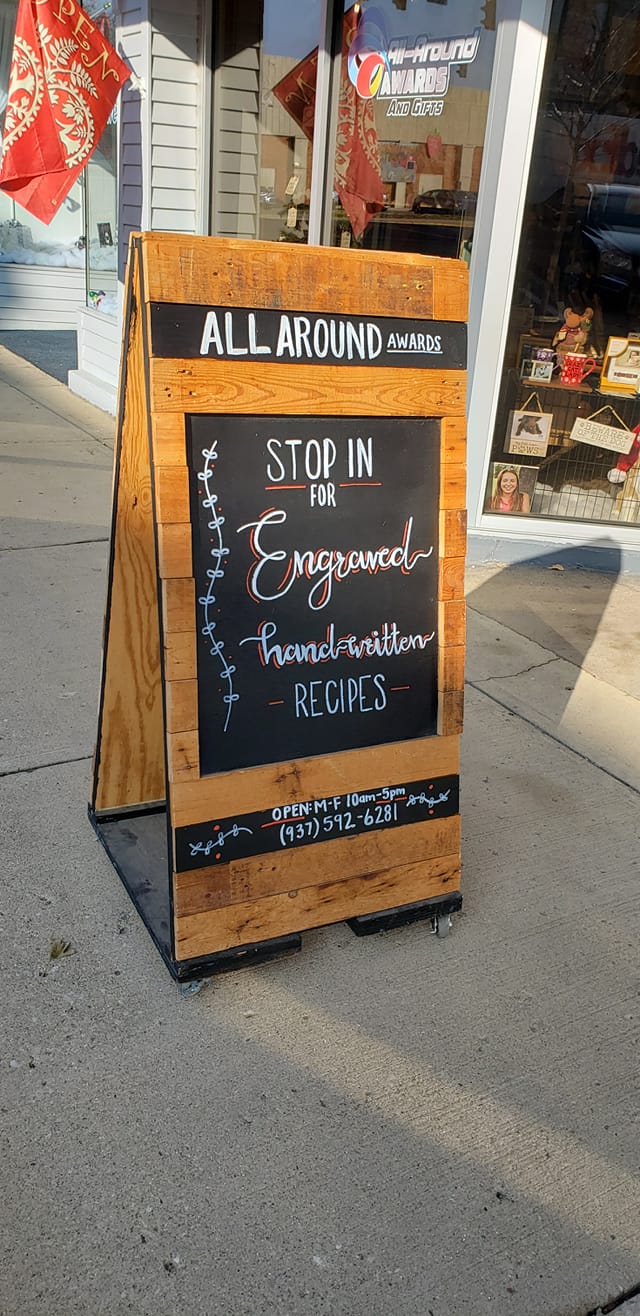 OPEN
All-Around
AWARDS
AND GIFTS
ALL AROUND AWARDS
STOP IN
FOR
Engraved
hand-written
- RECIPES -
OPEN: M-F 10am-5pm
(937) 592-6281
PAWS
BEWARE
OF THE DOG